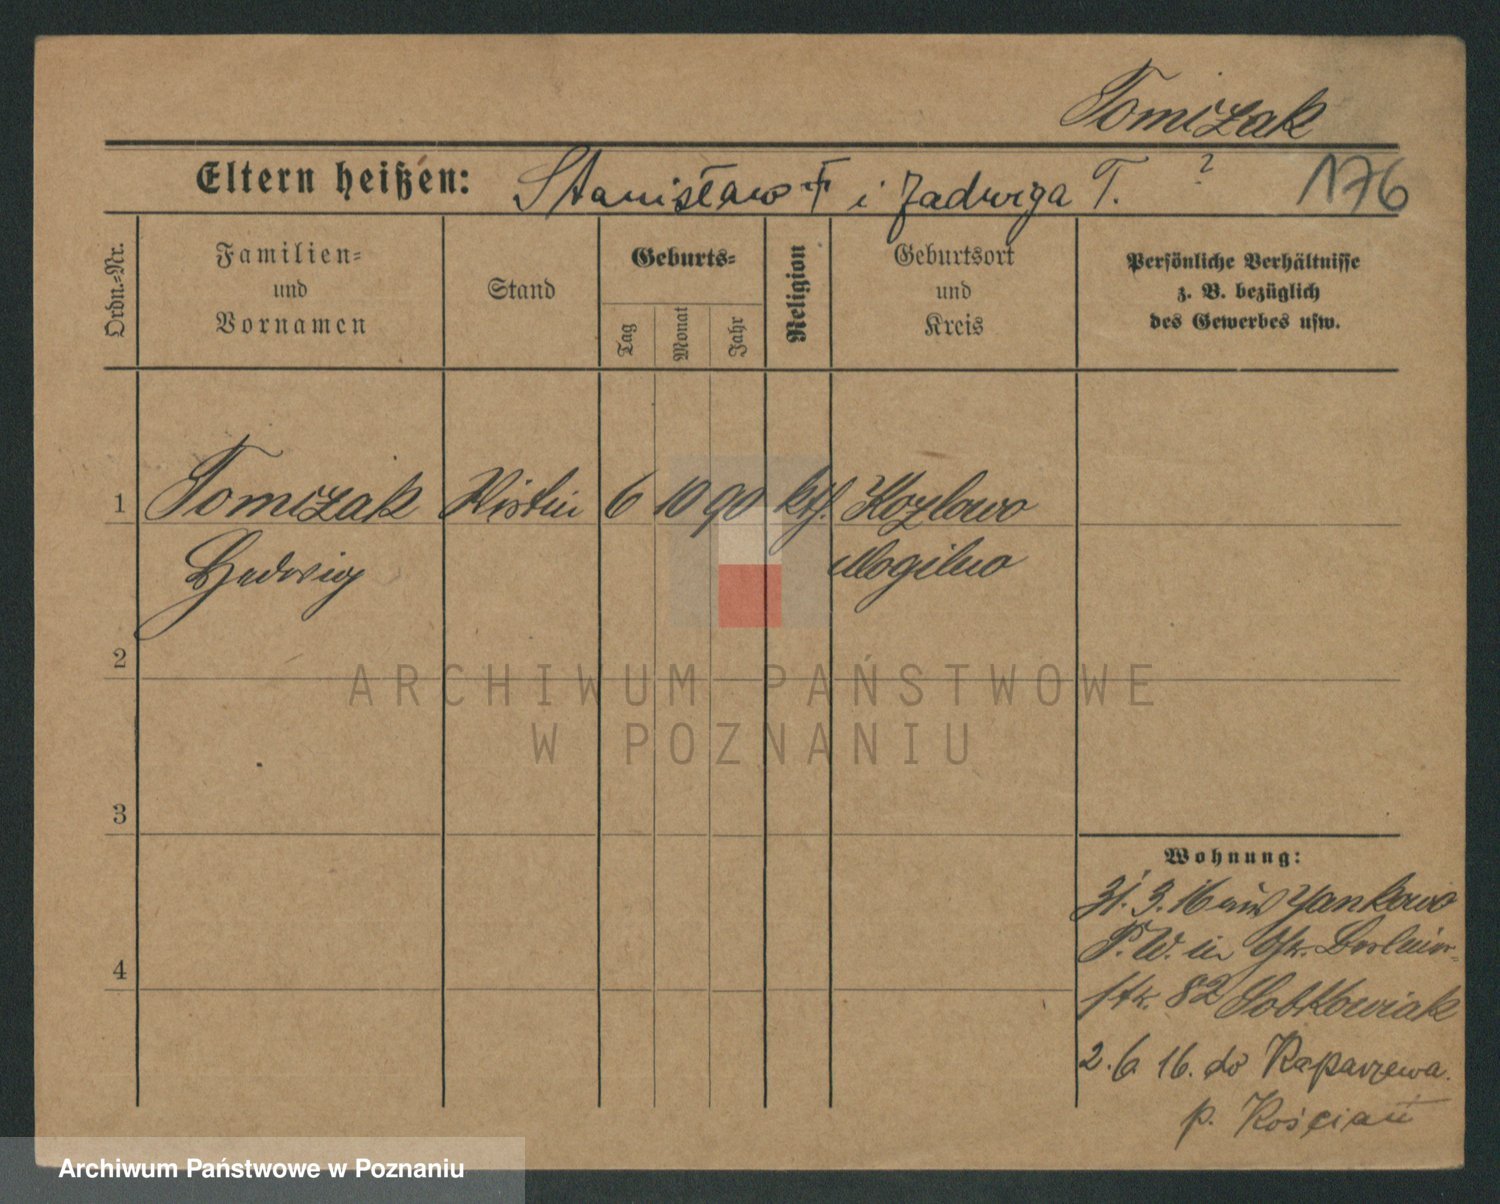 Tomczak
Eltern heißen: Stanisław † i Jadwiga T. ?
176
Ordn.-Nr.
Familien-
und
Vornamen
Stand
Geburts-
Tag
Monat
Jahr
Religion
Geburtsort
und
Kreis
Persönliche Verhältnisse
z. B. bezüglich
des Gewerbes usw.
1 Tomczak 6 10 90 kth. Kozlowo
Hedwig Mogilno
2
3
4
Wohnung:
31. 3. 16 aus Jankowo
P. W. in
str. 82 Sobkowiak
2. 6 16. do Raparzewa.
p. Kościan
ARCHIWUM PAŃSTWOWE
W POZNANIU
Archiwum Państwowe w Poznaniu